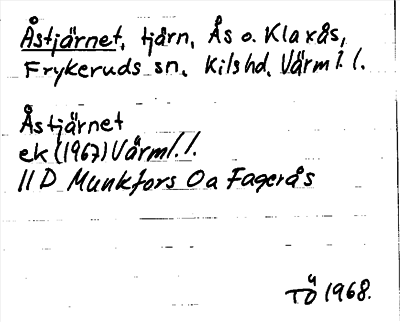 Åstjärnet, tjärn, Ås o. Klaxås,
Frykeruds sn. Kils hd. Värml. l.
Åstjärnet
ek (1967) Värml. l.
11 D Munkfors 0a Fagerås
TÖ 1968.